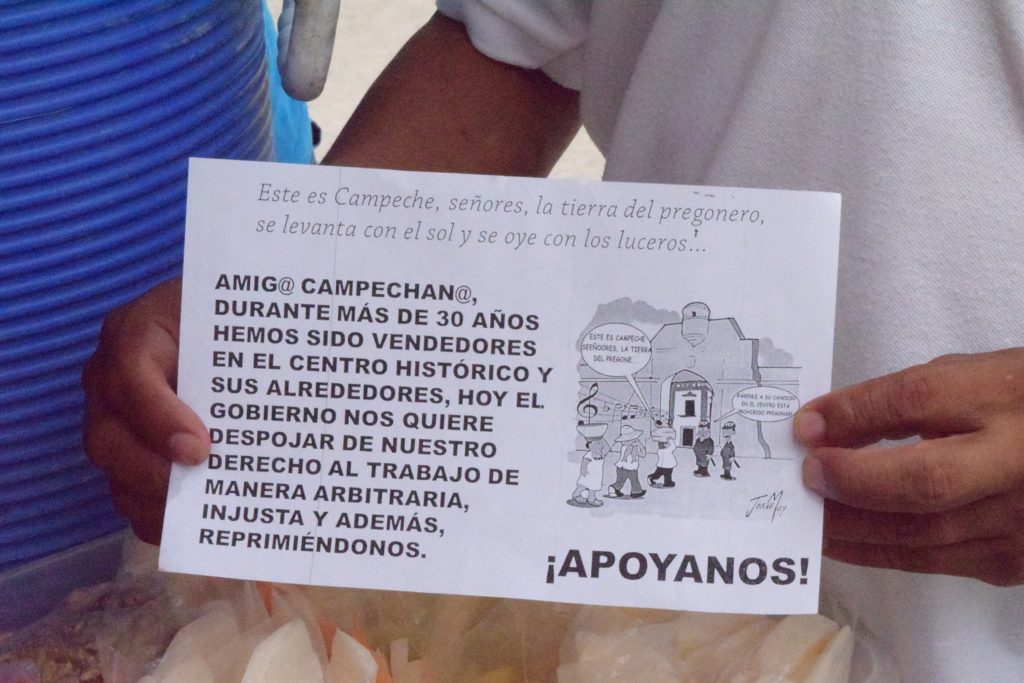 Este es Campeche, señores, la tierra del pregonero,
se levanta con el sol y se oye con los luceros...
AMIG@ CAMPECHAN@,
DURANTE MÁS DE 30 AÑOS
HEMOS SIDO VENDEDORES
EN EL CENTRO HISTÓRICO Y
SUS ALREDEDORES, HOY EL
GOBIERNO NOS QUIERE
DESPOJAR DE NUESTRO
DERECHO AL TRABAJO DE
MANERA ARBITRARIA,
INJUSTA Y ADEMÁS,
REPRIMIÉNDONOS.
ESTE ES CAMPECHE
SEEÑOORES, LA TIERRA
DEL PREGONE...
¡PARENLE A SU CANCIÓN
EN EL CENTRO ESTÁ
PROHIBIDO PREGONAR!
¡APOYANOS!